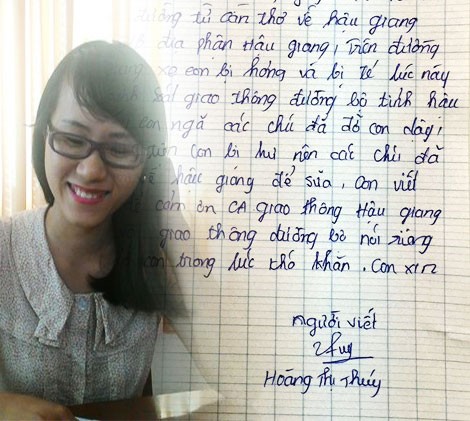 đường từ Cần thơ về hậu giang
địa phận Hậu giang, Trên đường
xe con bị hỏng và bị té lúc này
sát giao thông đường bộ tỉnh hậu
con ngã các chú đã đỡ con dậy,
con bị hư nên các chú đã
hậu giang để sửa. Con viết
cảm ơn CA giao thông Hậu giang
giao thông đường bộ nói riêng
con trong lúc khó khăn. Con xin
người viết
Thuý
Hoàng Thị Thuý